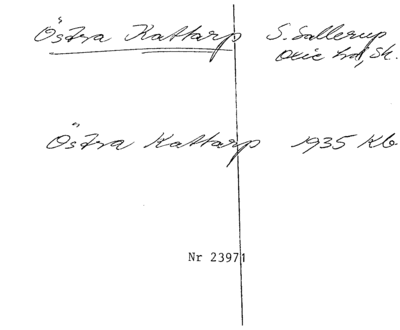 Östra Kattarp S. Sallerup
Oxie hd, Sk.
Östra Kattarp 1935 Kb
Nr 23971